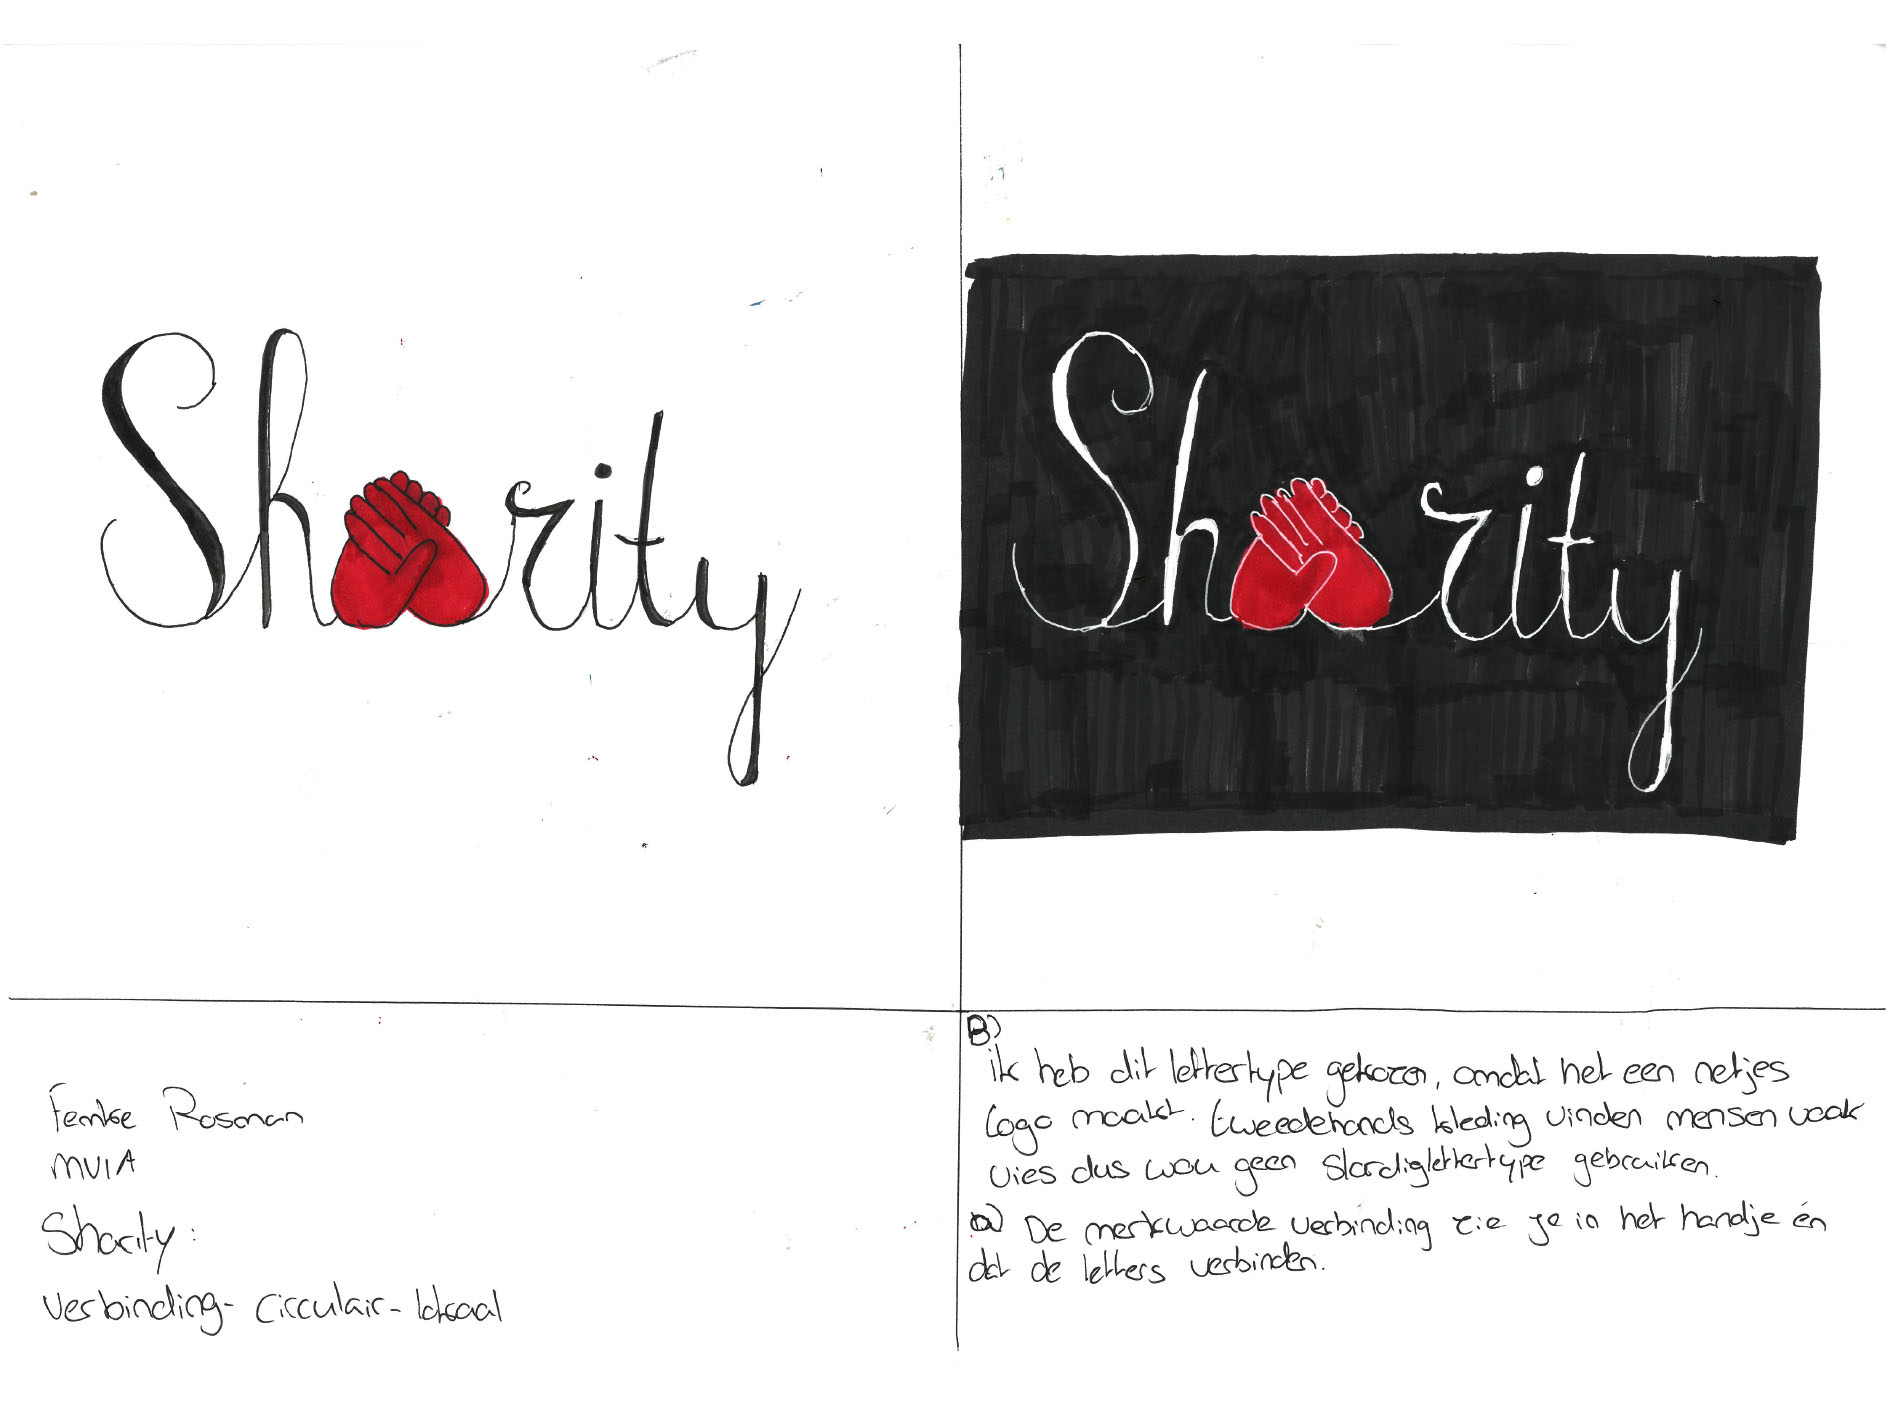 Sharity
Sharity
Femke Rosman
MV1A
Sharity:
verbinding - circulair - lokaal
B)
ik heb dit lettertype gekozen, omdat het een netjes
logo maakt. tweedehands kleding vinden mensen vaak
vies dus wou geen slordiglettertype gebruiken.
a) De merkwaarde verbinding zie je in het handje én
dat de letters verbinden.